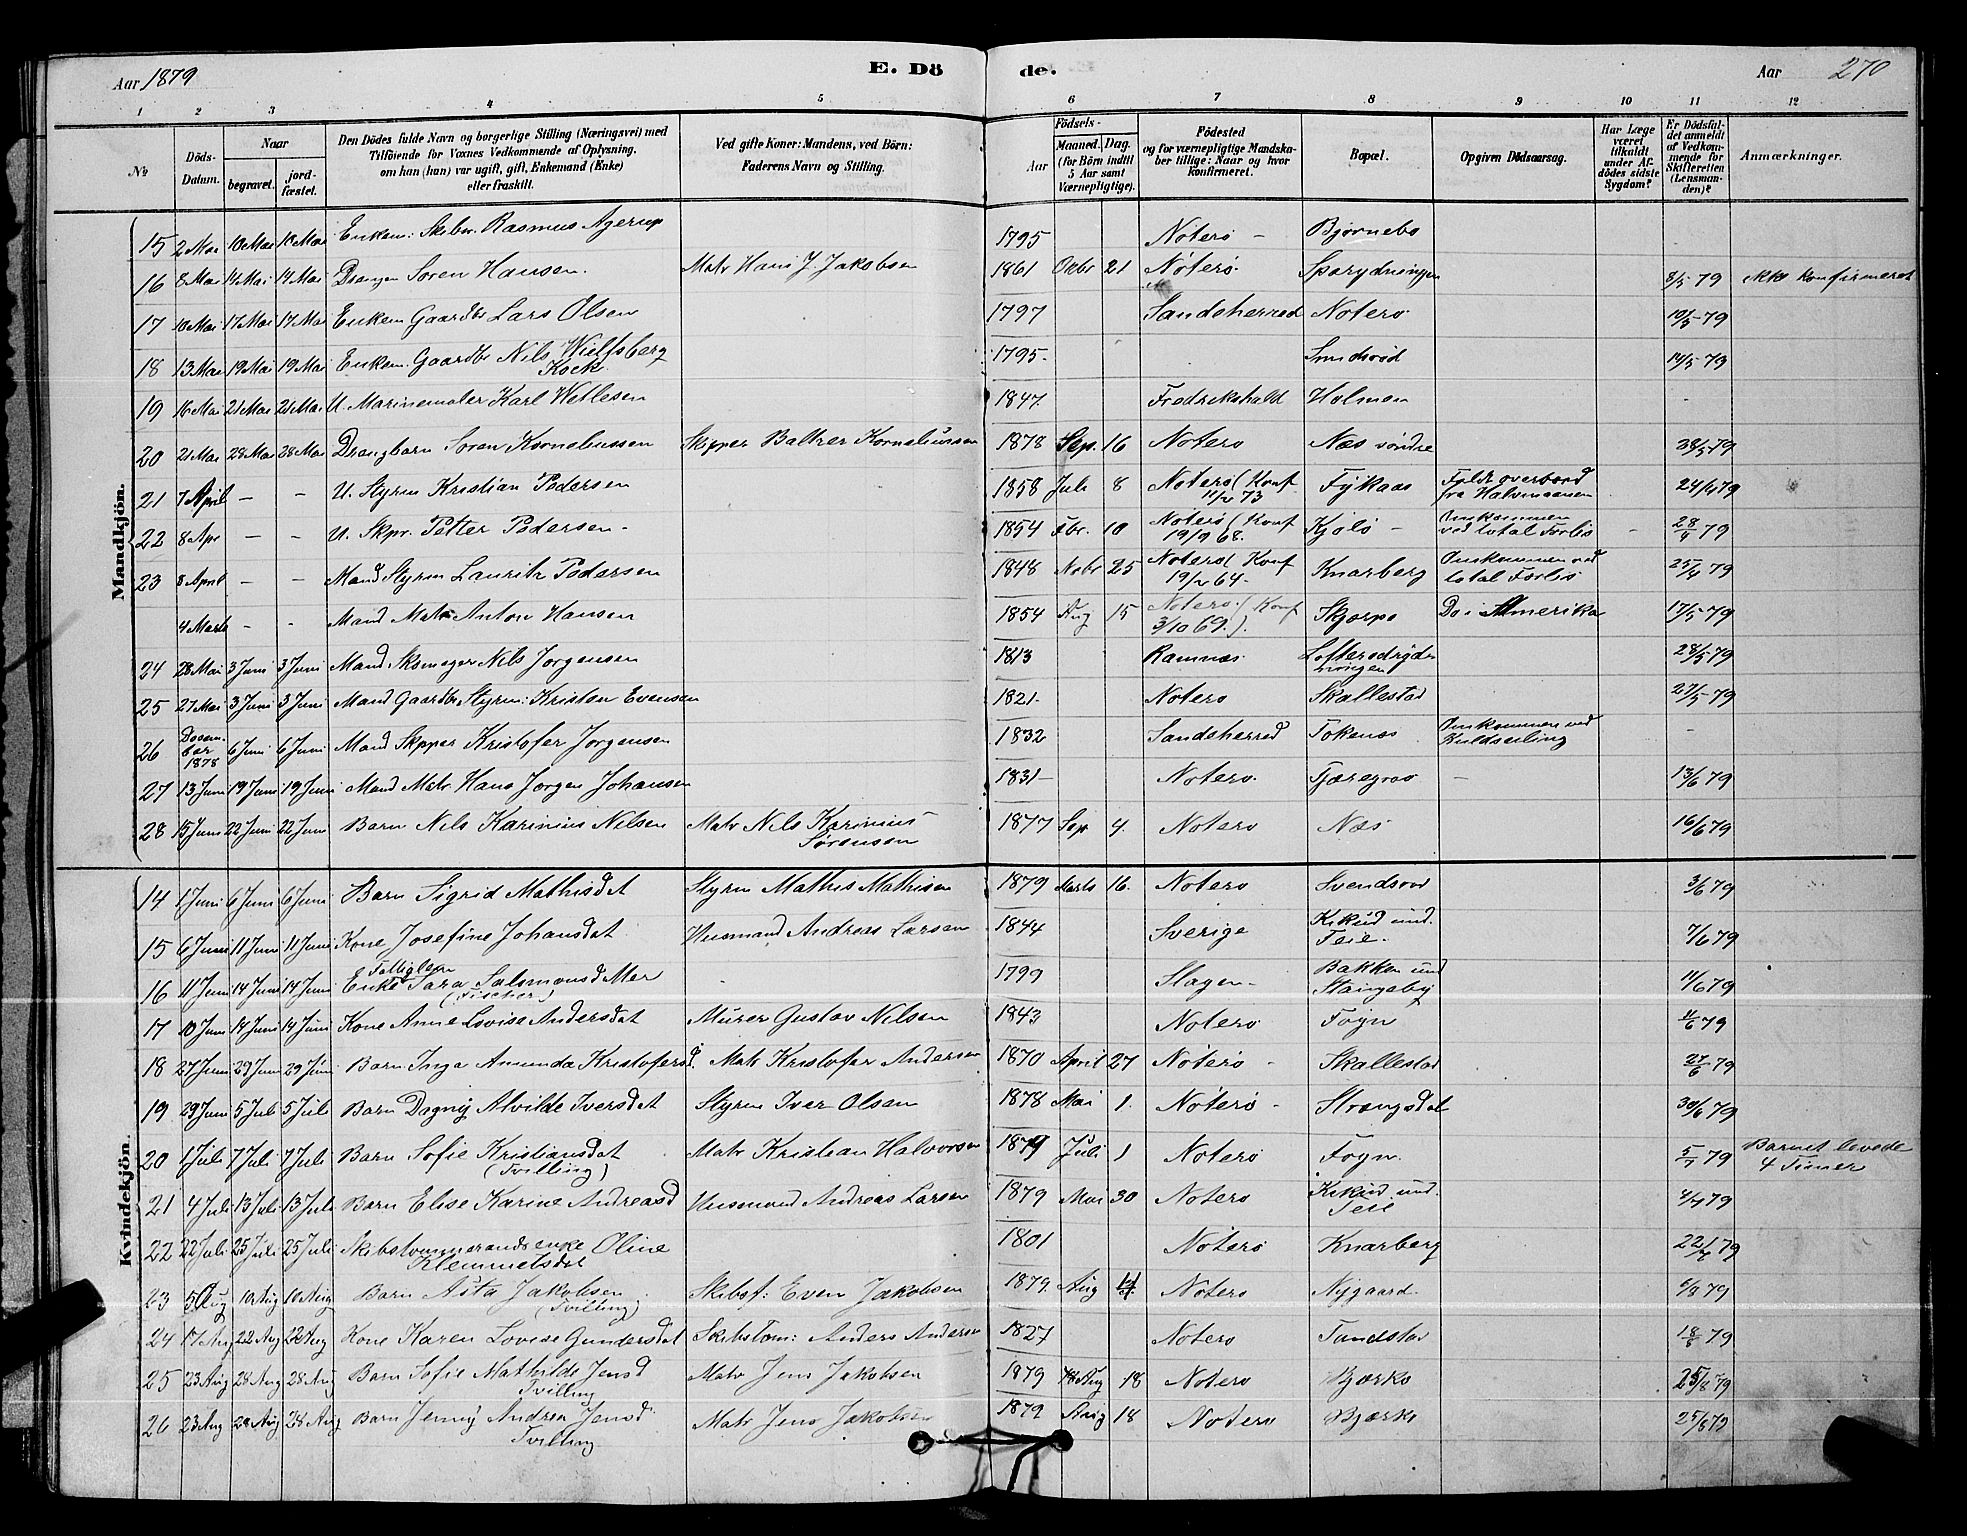 Aar 1879 E. Dö de. Aar 270
1 2 3 4 5 6 7 8 9 10 11 12
No Döds-Datum. Naar begravet. jordfæstet. Den Dödes fulde Navn og borgerlige Stilling (Næringsvei) med Tilföiende for Voxnes Vedkommende af Oplysning, om han (hun) var ugift, gift, Enkemand (Enke) eller fraskilt. Ved gifte Koner: Mandens, ved Börn: Faderens Navn og Stilling. Födsels- Aar Maaned. Dag. (for Börn indtil 5 Aar samt Værnepligtige). Födested og for værnepligtige Mandskaber tillige: Naar og hvor konfirmeret. Bopæl. Opgiven Dödsaarsag. Har Læge været tilkaldt under Afdödes sidste Sygdom? Er Dödsfaldet anmeldt af Vedkommende for Skifteretten (Lensmanden)? Anmærkninger.
Mandkjön.
15 2 Mai 10 Mai 10 Mai Enkem: Skibsr. Rasmus Agerup 1795 Noterø - Bjørnebo
16 8 Mai 14 Mai 14 Mai Drengen Soren Hansen. Matr Hans J. Jakobsen 1861 Oktbr 21 Nøterø. 8/5 79 ikke konfirmeret
17 10 Mai 17 Mai 17 Mai Enkem Gaardbr Lars Olsen 1797 Sandeherred Noterø 10/5 79
18 13 Mai 19 Mai 19 Mai Enkem. Gaardbr Nils Wielfsberg 1795. Smidsrød 14/5 79
Kock
19 16 Mai 21 Mai 21 Mai U. Marinemaler Karl Wetlesen 1847. Fredrikshald Holmen
20 21 Mai 28 Mai 28 Mai Drengbarn Soren Korneliussen Skipper Baltzer Korneliussen 1878 Sep. 16 Noterø Næs søndre 28/5 79
21 7 April - - U. Styrm Kristian Pedersen 1858 Juli 8 Noterø (Konf Fykaas Faldt overbord 24/4 79
73 fra Halvmaanen
22 8 Apr - - U. Skpr. Petter Pedersen - 1854 Fbr. 10 Noterø (Konf Kjolø - Omkommen 28 79
19/9 68. ved total Forlis
23 8 April - - Mand Styrm Lauritz Pedersen 1848 Nobr 25 Noterø (Konf Knarberg Omkommen ved 25/4 79
64. total Forlis
4 Marts - - Mand Matr Anton Hansen 1854 Aug 15 Noterø. (Konf Skjerpe Do i Amerika 17/5 79
3/10 69.).
24 28 Mai 3 Juni 3 Juni Mand Skomager Nils Jorgensen 1813 Ramnæs. 28/5 79
25 27 Mai 3 Juni 3 Juni Mand Gaardbr Styrm: Kristen Evensen 1821. Noterø Skallestad 27/5 79
26 Decem- 6 Juni 6 Juni Mand Skpper Kristofer Jorgensen 1832 Sandeherred Tokenæs Omkommen ved -
ber 1878 Kuldseiling
27 13 Juni 19 Juni 19 Juni Mand Matr Hans Jorgen Johansen 1831 - Noterø. Tjæregrav - 13/6 79
28 15 Juni 22 Juni 22 Juni Barn Nils Karinius Nilsen Matr Nils Karinius 1877 Sep 4. Noterø Næs 16/6 79
Sørensen
Kvindekjön.
14 1 Juni 6 Juni 6 Juni Barn Sigrid Mathisdat Styrm Mathis Mathisen 1879 Marts 16. Noterø Svendsrod 3/6 79
15 6 Juni 11 Juni 11 Juni Kone Josefine Johansdat Husmand Andreas Larsen 1844 Sverige Kikud und. 7/6 79
Teie.
Fattiglem
16 11 Juni 14 Juni 14 Juni Enke Sara Salomonsd Mer 1799 Slagen - Bakken und 11/6 79
(Fischer) Stangeby
17 10 Juni 14 Juni 14 Juni Kone Anne Lovise Andersdat Murer Gustav Nilsen 1843 Noterø Fogn 11/6 79
18 27 Juni 29 Juni 29 Juni Barn Inga Amunda Kristofersd. Matr Kristofer Andersen 1870 April 27 Nøterø - Skallestad 27/6 79
19 29 Juni 5 Juli 5 Juli Barn Dagny Alvilde Iversdat Styrm Iver Olsen 1878 Mai 1. Nøterø - Strengsdal 30/6 79
20 1 Juli 7 Juli 7 Juli Barn Sofie Kristiansdat Matr Kristian Halvorsen 1879 Juli 1 Noterø Fogn. 5/7 79 Barnet levede
(Tvilling) 4 Timer
21 4 Juli 13 Juli 13 Juli Barn Elise Karine Andreasd Husmand Andreas Larsen 1879 Mai 30 Noterø Kikud und. 4/7 79
Teie
22 22 Juli 25 Juli 25 Juli Skibstommermands enke Oline 1801 Nøterø Knarberg 22/7 79
Klemmetsdat
23 5 Aug 10 Aug 10 Aug Barn Asta Jakobsen Skibsf: Even Jakobsen 1879. Aug Noterø Nygaard. 6/8 79
(Tvilling)
24 17 Aug 22 Aug 22 Aug Kone Karen Lovise Gundersdat Skibstøm: Anders Andersen 1827 Noterø Tandstad 18/8 79
25 23 Aug 28 Aug 28 Aug Barn Sofie Mathilde Jensd Matr Jens Jakobsen 1879 Aug 18 Noterø Bjærkø 25/8 79
Tvilling
26 23 Aug 28 Aug 28 Aug Barn Jenny Andrea Jensd Matr Jens Jakobsen 1879 Aug 18 Noterø Bjærkø 25/8 79
Tvilling